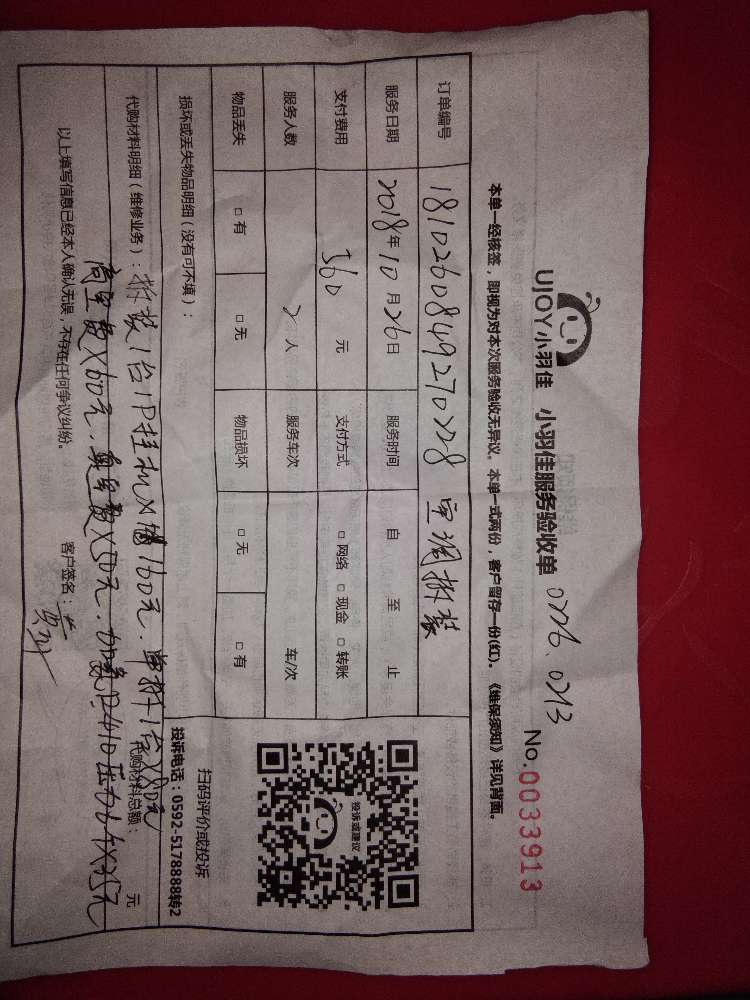 UJOY小羽佳 小羽佳服务验收单 0226、0213
No.0033913
本单一经核签，即视为对本次服务验收无异议。本单一式两份，客户留存一份(红)。《维保须知》详见背面。
订单编号 1810260849270228 空调拆装
服务日期 2018年10月26日 服务时间 自 至 止
支付费用 360 元 支付方式 □ 网络 □ 现金 □ 转账
服务人数 2人 服务车次 车/次
物品丢失 □ 有 □ 无 物品损坏 □ 无 □ 有
损坏或丢失物品明细（没有可不填）：
投诉或建议
扫码评价或投诉
投诉电话：0592-5178888转2
代购材料明细（维修业务）：拆装1台1P挂机 160元．单拆1台X50元
高空费X60元．
代购材料总额： 元
以上填写信息已经本人确认无误，不存在任何争议纠纷。 客户签名：